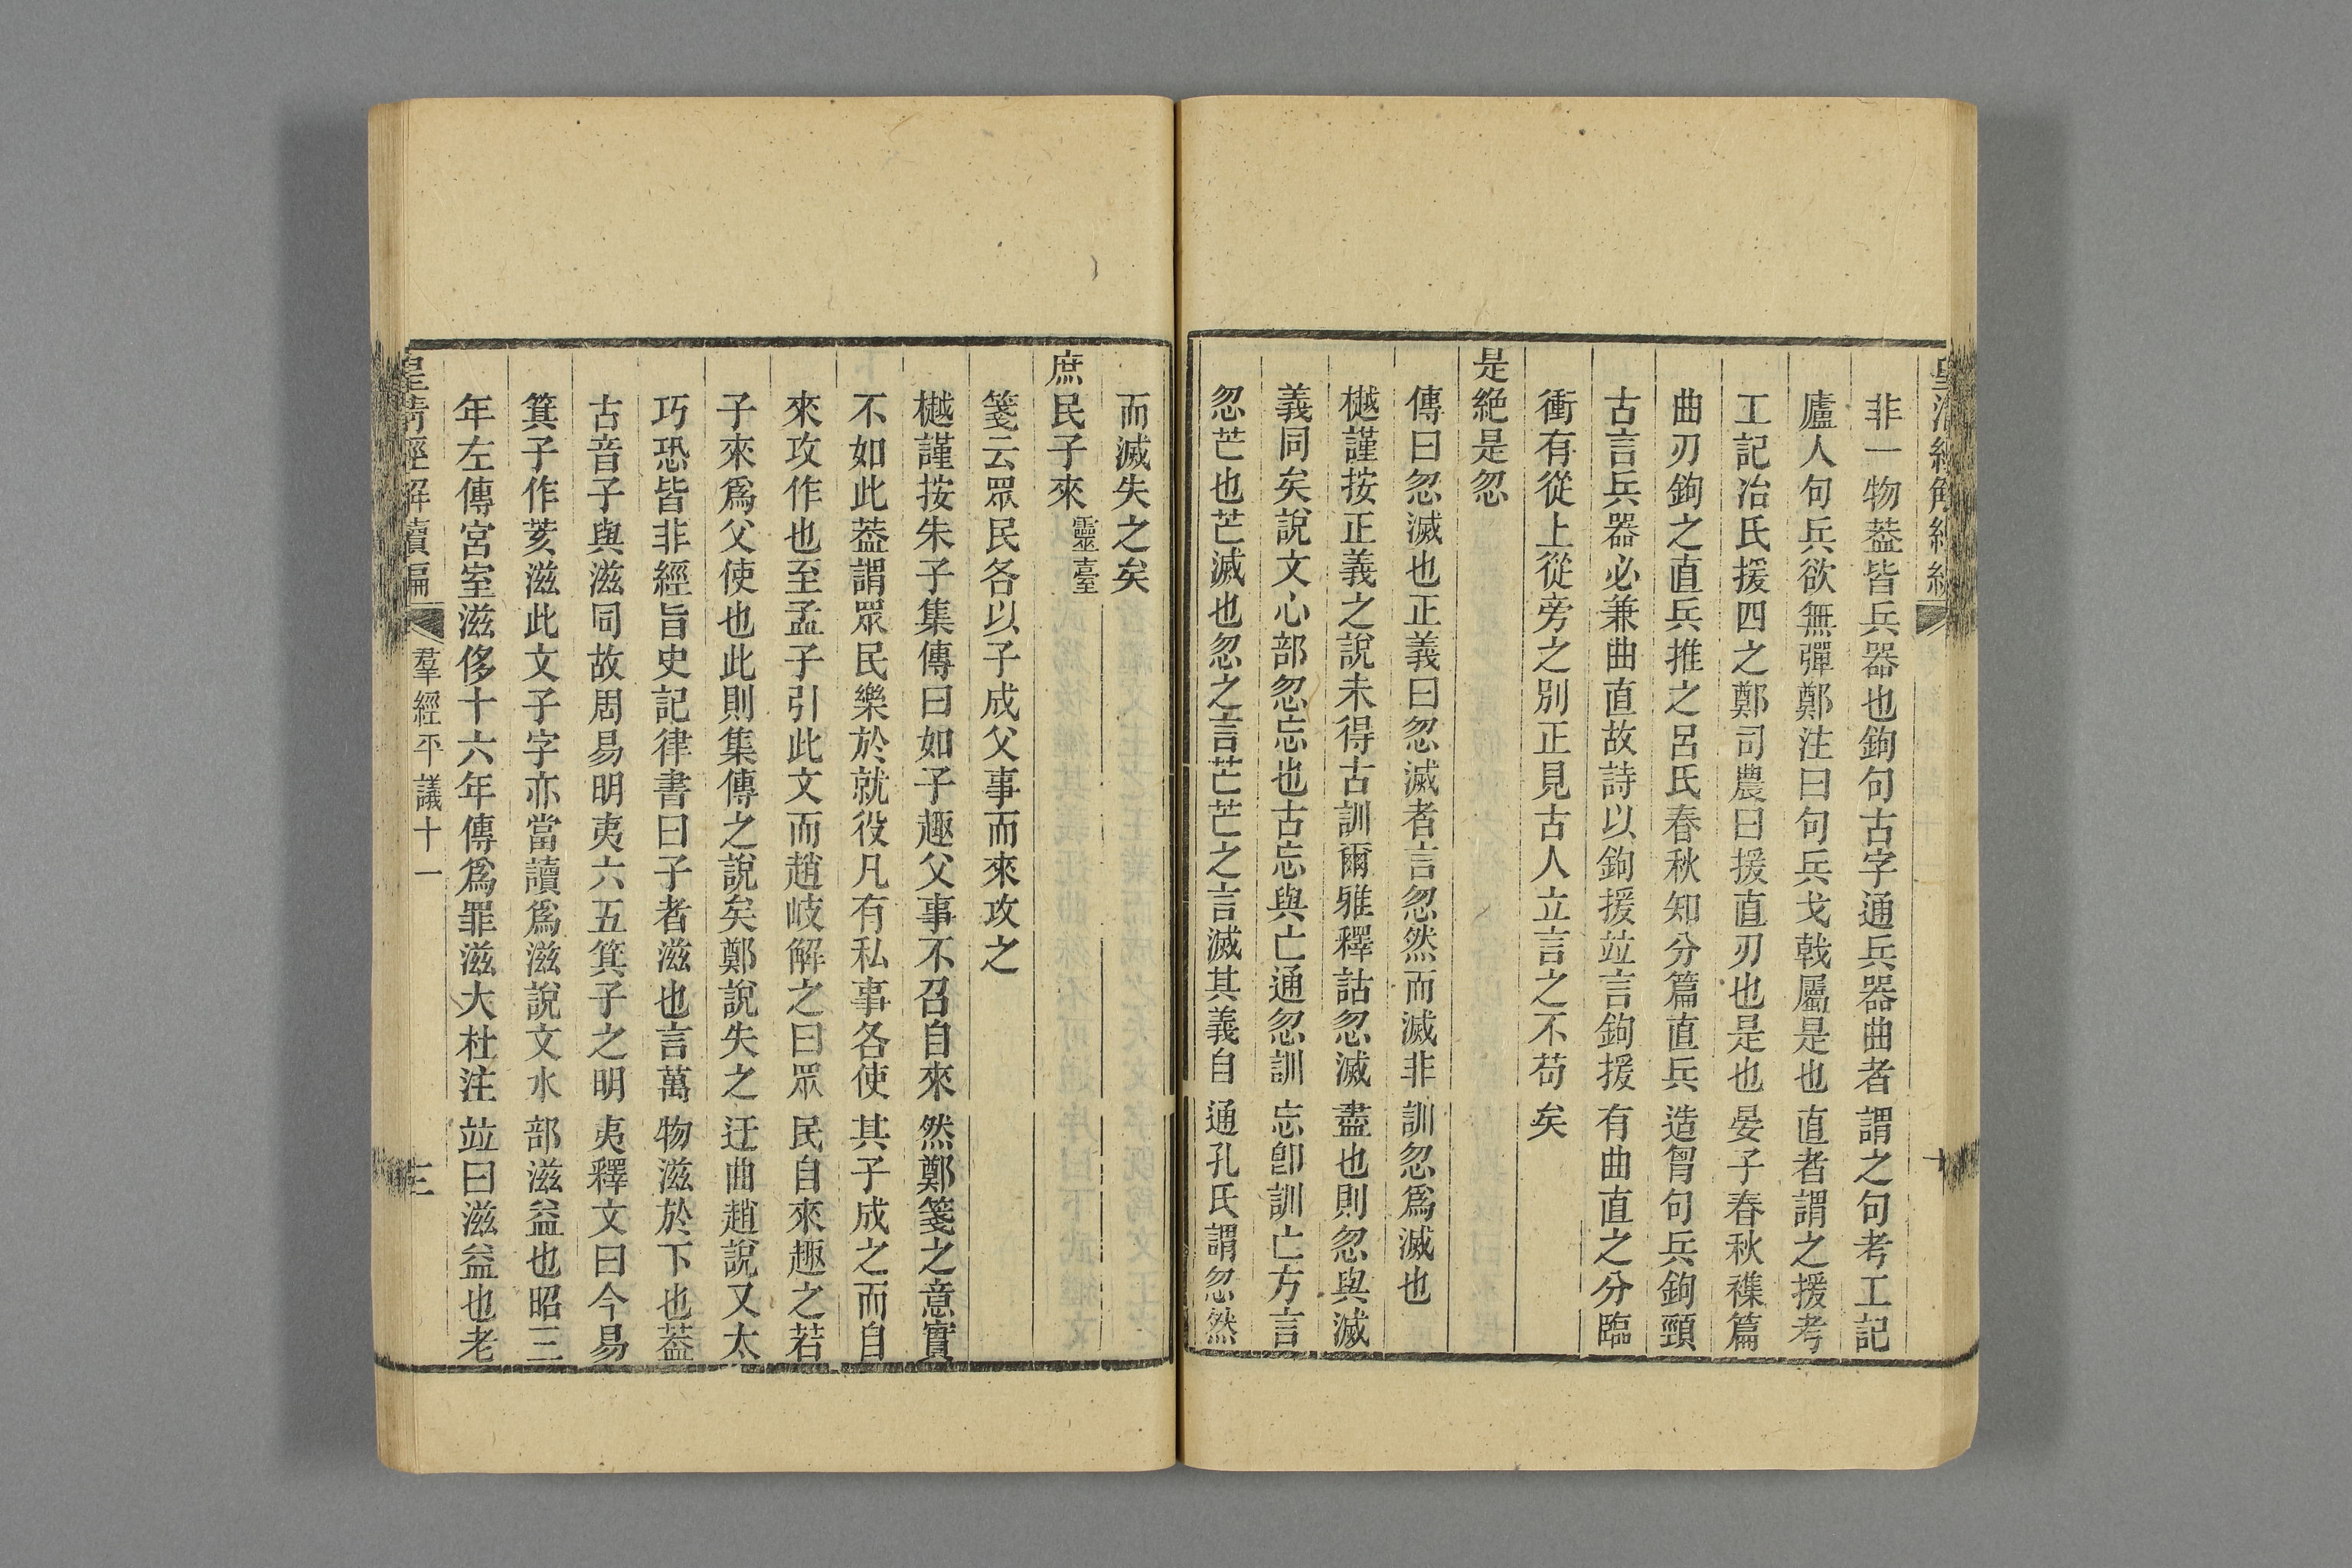 非一物葢皆兵器也鉤句古字通兵器曲者謂之句考工記
廬人句兵欲無彈鄭注曰句兵戈戟屬是也直者謂之援考
工記冶氏援四之鄭司農曰援直刃也是也晏子春秋襍篇
曲刃鉤之直兵推之呂氏春秋知分篇直兵造胷句兵鉤頸
古言兵器必兼曲直故詩以鉤援竝言鉤援有曲直之分臨
衝有從上從旁之別正見古人立言之不苟矣
是絶是忽
傳曰忽滅也正義曰忽滅者言忽然而滅非訓忽爲滅也
樾謹按正義之說未得古訓爾雅釋詁忽滅盡也則忽與滅
義同矣說文心部忽忘也古忘與亡通忽訓忘卽訓亡方言
忽芒也芒滅也忽之言芒芒之言滅其義自通孔氏謂忽然
而滅失之矣
庶民子來靈臺
箋云眾民各以子成父事而來攻之
樾謹按朱子集傳曰如子趣父事不召自來然鄭箋之意實
不如此葢謂眾民樂於就役凡有私事各使其子成之而自
來攻作也至孟子引此文而趙岐解之曰眾民自來趣之若
子來爲父使也此則集傳之說矣鄭說失之迂曲趙說又太
巧恐皆非經旨史記律書曰子者滋也言萬物滋於下也葢
古音子與滋同故周易明夷六五箕子之明夷釋文曰今易
箕子作荄滋此文子字亦當讀爲滋說文水部滋益也昭三
年左傳宮室滋侈十六年傳爲罪滋大杜注竝曰滋益也老
皇清經解續編 羣經平議十一